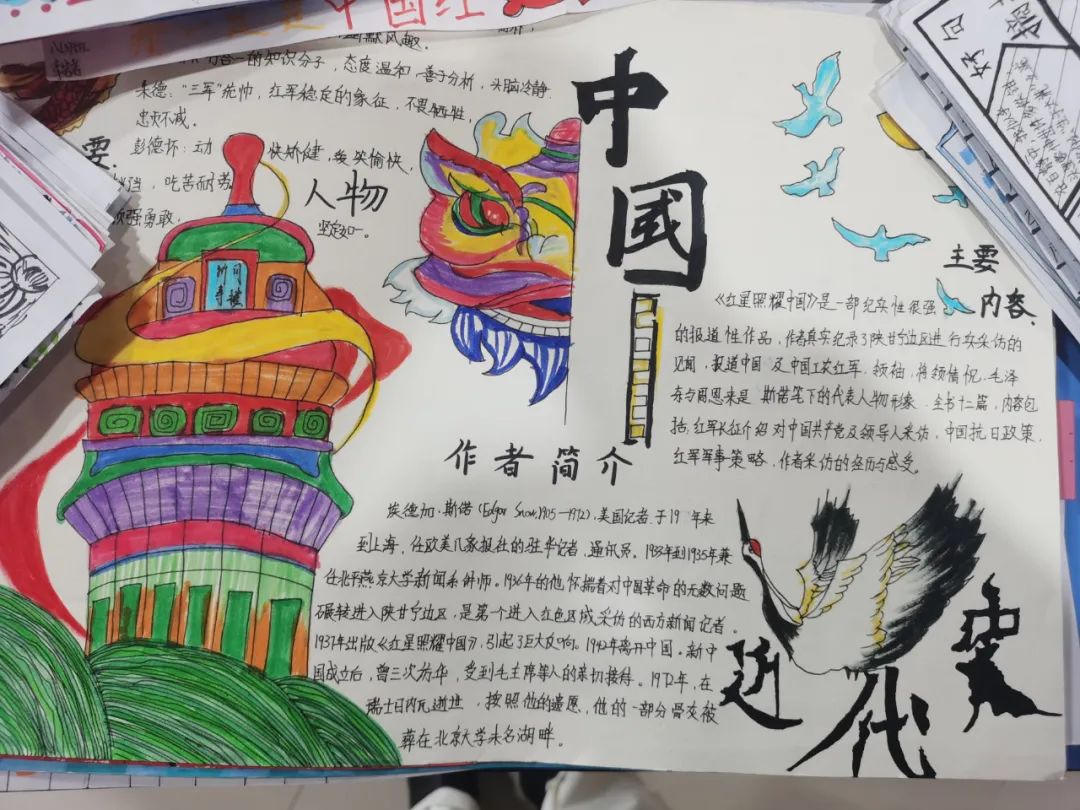 中国红
幽默风趣.
一的知识分子，态度温和 善于分析，头脑冷静.
朱德："三军"统帅，红军稳定的象征，不畏牺牲，
忠贞不减.
彭德怀：动 快矫健，爱笑愉快，
吃苦耐劳
顽强勇敢.
人物
坚定如一。
要.
中国
主要
内容.
《红星照耀中国》是一部纪实性很强
的报道性作品，作者真实纪录了陕甘宁边区进行实采访的
见闻，报道中国 及中国工农红军.领袖，将领情况.毛泽
东与周恩来是 斯诺笔下的代表人物形象.全书十二篇，内容包
括：红军长征介绍 对中国共产党及领导人采访，中国抗日政策，
红军军事策略，作者采访的经历与感受。
作者简介
埃德加·斯诺（Edgar Snow,1905—1972），美国记者.于19 年来
到上海，任欧美几家报社的驻华记者，通讯员。1933年到1935年兼
任北平燕京大学新闻系讲师。1936年的他怀揣着对中国革命的无数问题
辗转进入陕甘宁边区，是第一个进入红色区域采访的西方新闻记者。
1937年出版《红星照耀中国》，引起了巨大反响。1942年离开中国。新中
国成立后，曾三次访华，受到毛主席等人的亲切接待。1972年，在
瑞士日内瓦逝世，按照他的遗愿，他的一部分骨灰被
葬在北京大学未名湖畔。
近代史